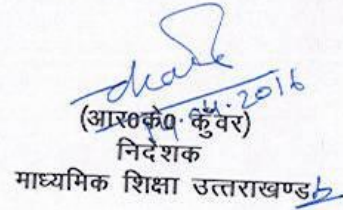 (आर०के० कुँवर)
निदेशक
माध्यमिक शिक्षा उत्तराखण्ड